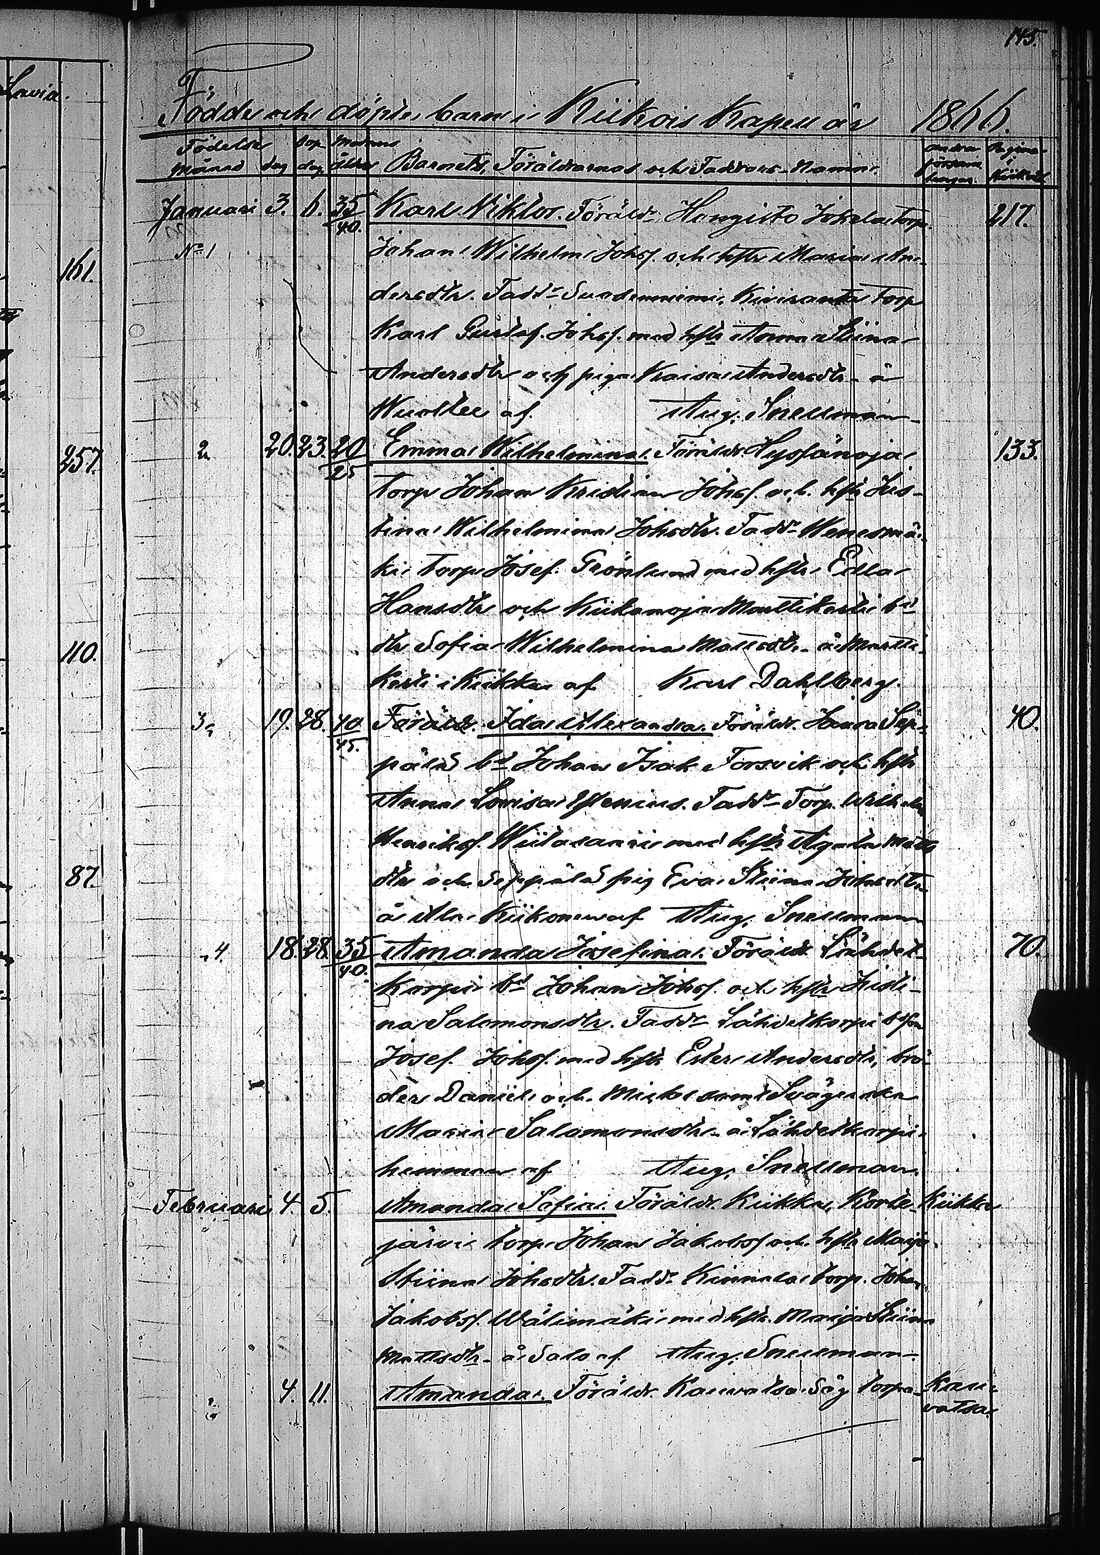 145.
Lavia.
Födde och döpte barn i Kiikois Kapell år 1866.
Födelse månad dag Dop dag Modrens ålder Barnets, Föräldrarnas och Faddrars Namn. andra församlingar Pagina i Kiikois
Januari 3. 6. 35/40. Karl Viktor. Föräldr. Hongisto Jokela torp. 217.
N:o 1 Johan Wilhelm Johsf. och hstr Maria An-
161.
dersdtr. Fadd:r Suodenniemi, Kiviranta torp
Karl Gustaf Johsf. med hstr Anna Stiina
Andersdtr och piga Kaisa Andersdtr å
af Aug. Snellman
257. 2. 20. 23. 20/25 Emma Wilhelmina. Föräldr. 133.
torp Johan Kristian Johsf. och hstr Jus-
tina Wilhelmina Johsdtr. Fadd:r
ki torp Josef Grönlund med hstr Edla
Hansdtr och Kiikanoja Marttikerti bd
dtr Sofia Wilhelmina Mattsdtr. å Martti-
110.
kerti i Kiikka af Karl Dahlberg.
3. 19. 28. 40/45. Föräldr. Ida Alexandra. Föräldr. Sep- 40.
pälä bd Johan Isak Forsvik och hstr
Anna Lovisa Stenius. Fadd:r Torp. Wilhelm
Henriksf. med hstr Agata Matts
87.
dtr och Seppälä pig Eva Stiina Johsdtr
å Ala Kiikonen af Aug. Snellman
4. 18. 28. 35/40. Amanda Josefina. Föräldr. Lähdet- 70.
korpi bd Johan Johsf. och hstr Kristi-
na Salomonsdtr. Fadd:r Lähdetkorpi
Josef Johsf. med hstr Ester Andersdtr, brö-
der Daniel och Mickel samt Svägerska
Maria Salomonsdtr å Lähdetkorpi
hemman af Aug. Snellman.
Februari 4. 5. Amanda Sofia. Föräldr. Kiikka, Korte- Kiikka
järvi torp. Johan Jakobsf och hstr Maja
Stiina Johsdtr. Fadd:r Kinnala torp. Johan
Jakobsf. Wälimäki med hstr. Maija Stiina
Mattsdtr å Salo af Aug. Snellman.
" 4. 11. Amanda. Föräldr. Kauvatsa Säg torpa- Kau-
vatsa.